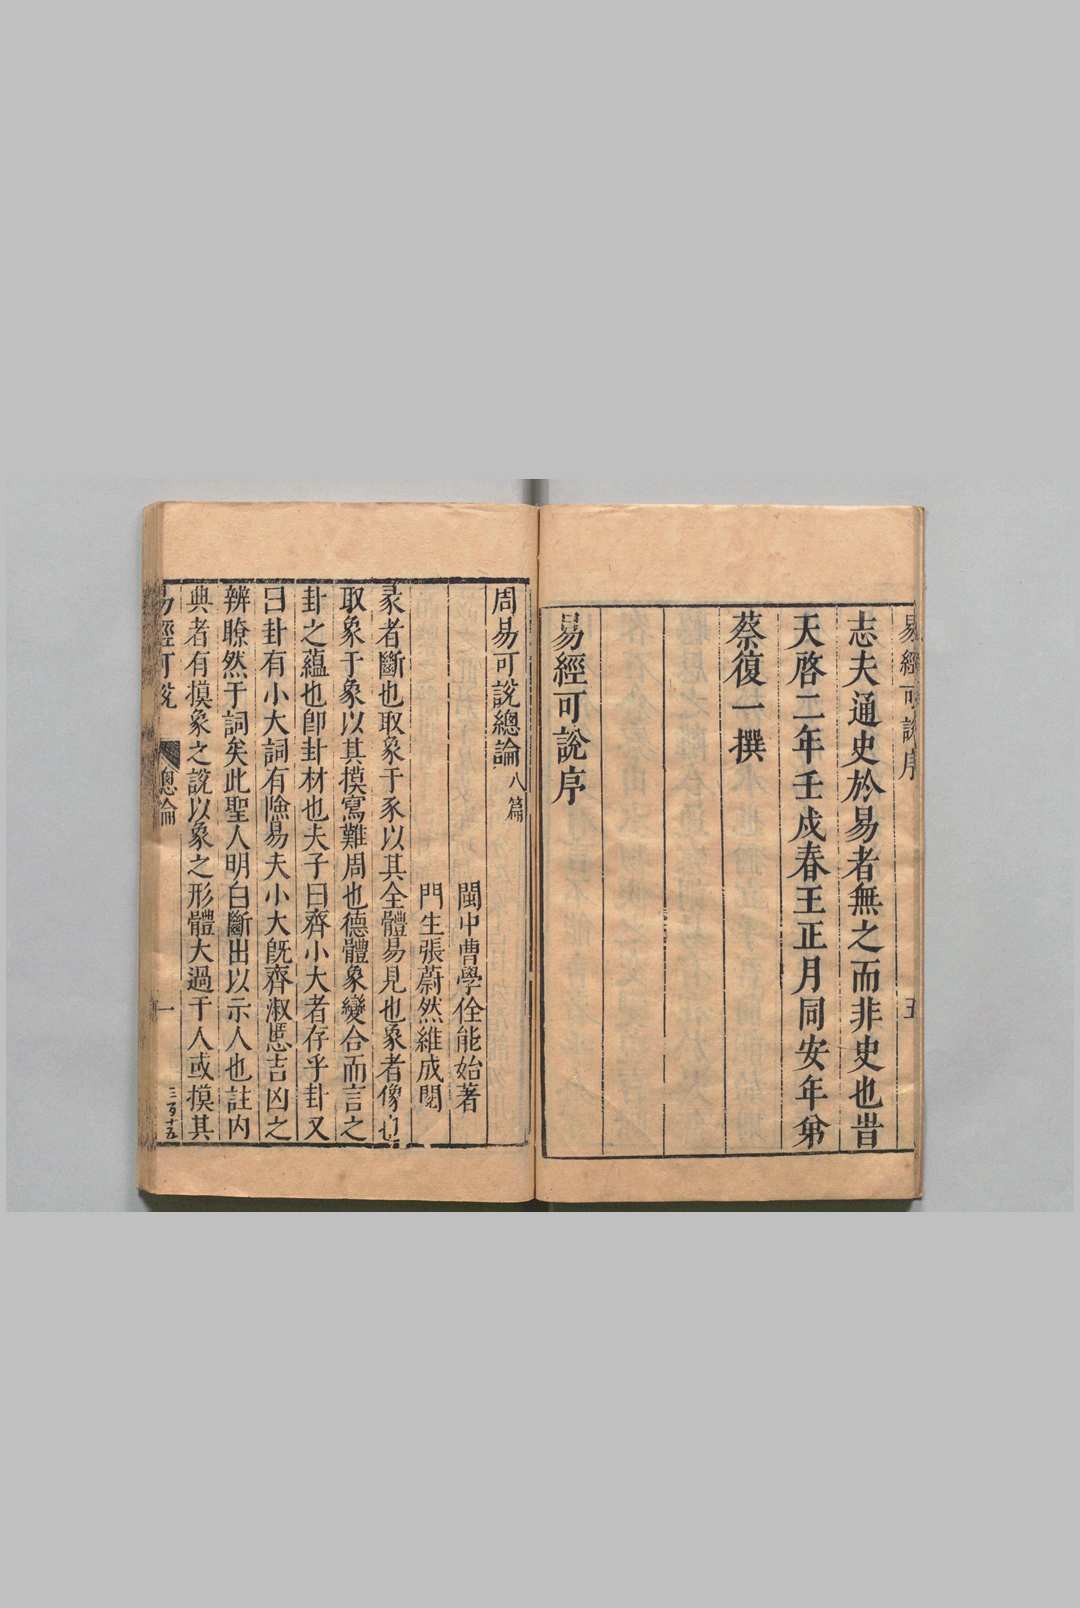 易經可說序
五
志夫通史於易者無之而非史也昔
天啓二年壬戍春王正月同安年弟
蔡復一撰
易經可說序
周易可說總論八篇
閩中曹學佺能始著
門生張蔚然維成閱
彖者斷也取象于豕以其全體易見也象者像也
取象于象以其摸寫難周也德體象變合而言之
卦之蘊也卽卦材也夫子曰齊小大者存乎卦又
曰卦有小大詞有險易夫小大旣齊淑慝吉凶之
辨瞭然于詞矣此聖人明白斷出以示人也註內
典者有摸象之說以象之形體大過于人或摸其
易經可說
總論
一
三百十五